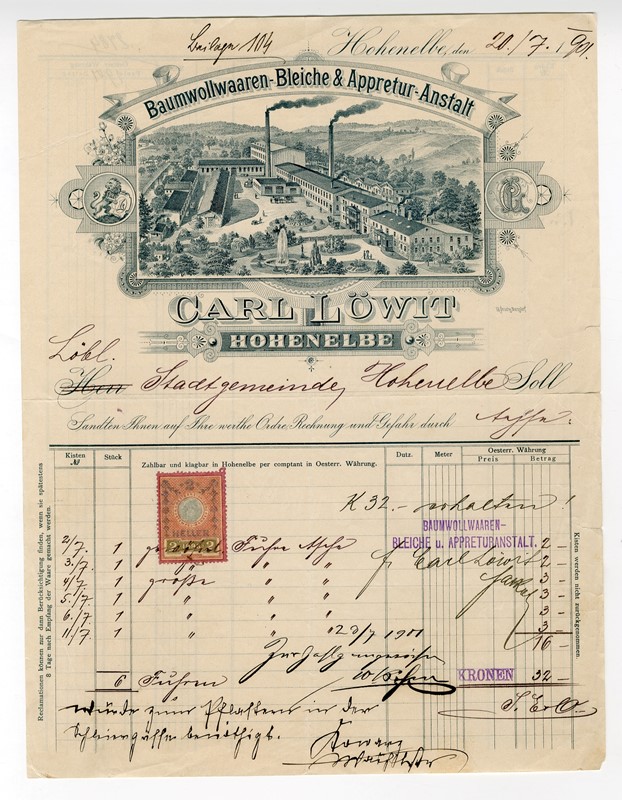 Beilage 104
Hohenelbe, den 20./7. 1901.
Baumwollwaaren-Bleiche & Appretur-Anstalt
CARL LÖWIT
HOHENELBE
Löbl.
Herr Stadtgemeinde, Hohenelbe Soll
Sandten Ihnen auf Ihre werthe Ordre Rechnung und Gefahr durch
Kisten № Stück Zahlbar und klagbar in Hohenelbe per comptant in Oesterr. Währung. Dutz. Meter Oesterr. Währung Preis Betrag
Reclamationen können nur dann Berücksichtigung finden, wenn sie spätestens
8 Tage nach Empfang der Waare gemacht werden.
Kisten werden nicht zurückgenommen.
K 32.- erhalten!
2
HELLER
BAUMWOLLWAAREN-
BLEICHE u. APPRETURANSTALT.
2/7. 1 Fuhre Asche 2 -
3./7. 1 " " " Carl Löwit 2 -
4/7. 1 große " " 3 -
5./7. 1 " " " 3 -
6./7. 1 " " " 3 -
11/7. 1 " " " 3 -
23/7 1901 16 -
Zur Zahlg angewiesen
6 Fuhren KRONEN 32 -
S. E. & O.
wurde zum Pflastern in der
benöthigt.